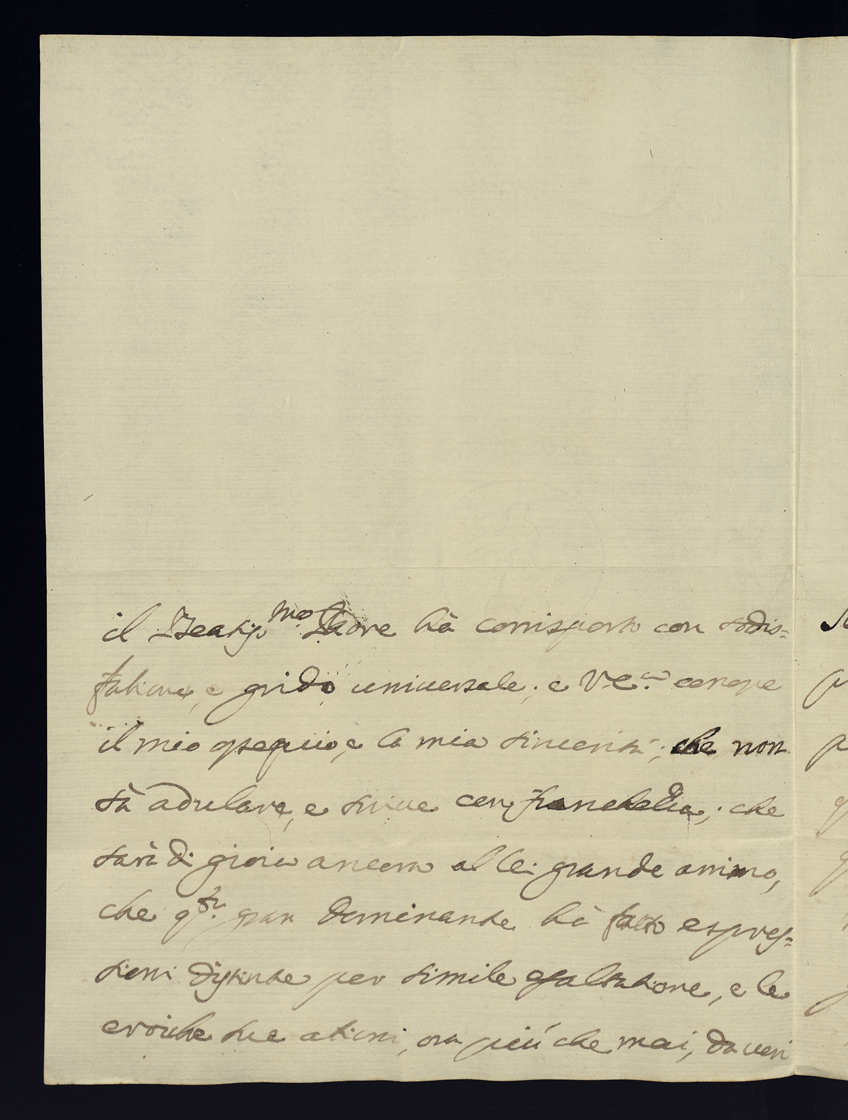 il Beatiss.mo Padre hà corrisposto con sodis=
fatione, e grido universale; e V.E.za
il mio ossequio, e la mia sincerità, che non
sà adulare, e scrive con franchezza; che
sarà di gioia ancora al lei grande animo,
che q.sta gran dominante hà fatto espres=
sioni distinte per simile esaltatione, e le
eroiche sue ationi, ora più che mai, da veri